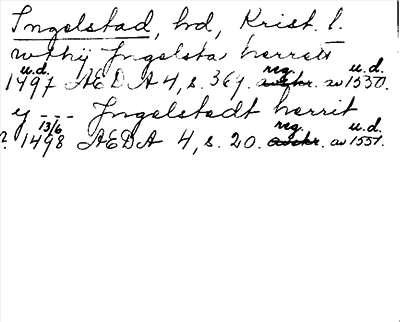 Ingelstad, hd, Krist. l.
wthij Ingelsta herrett
u.d. 1497 AEDA 4, s. 369. reg. av 1530. u.d.
y --- Jngelstedt herrit
13/6 1498 AEDA 4, s. 20. reg. av 1551. u.d.